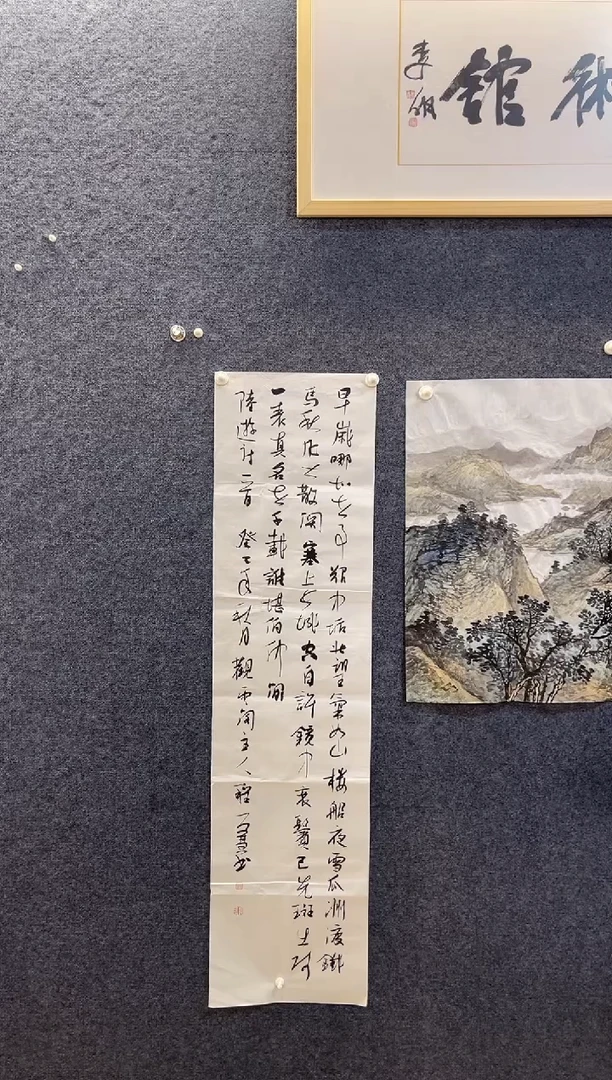 術館
早歲哪知世事艱中原北望氣如山樓船夜雪瓜洲渡鐵
馬秋風大散関塞上長城空自許鏡中衰鬢已先斑出師
一表真名世千載誰堪伯仲間
陸遊詩一首 癸卯年秋月觀雲閣主人